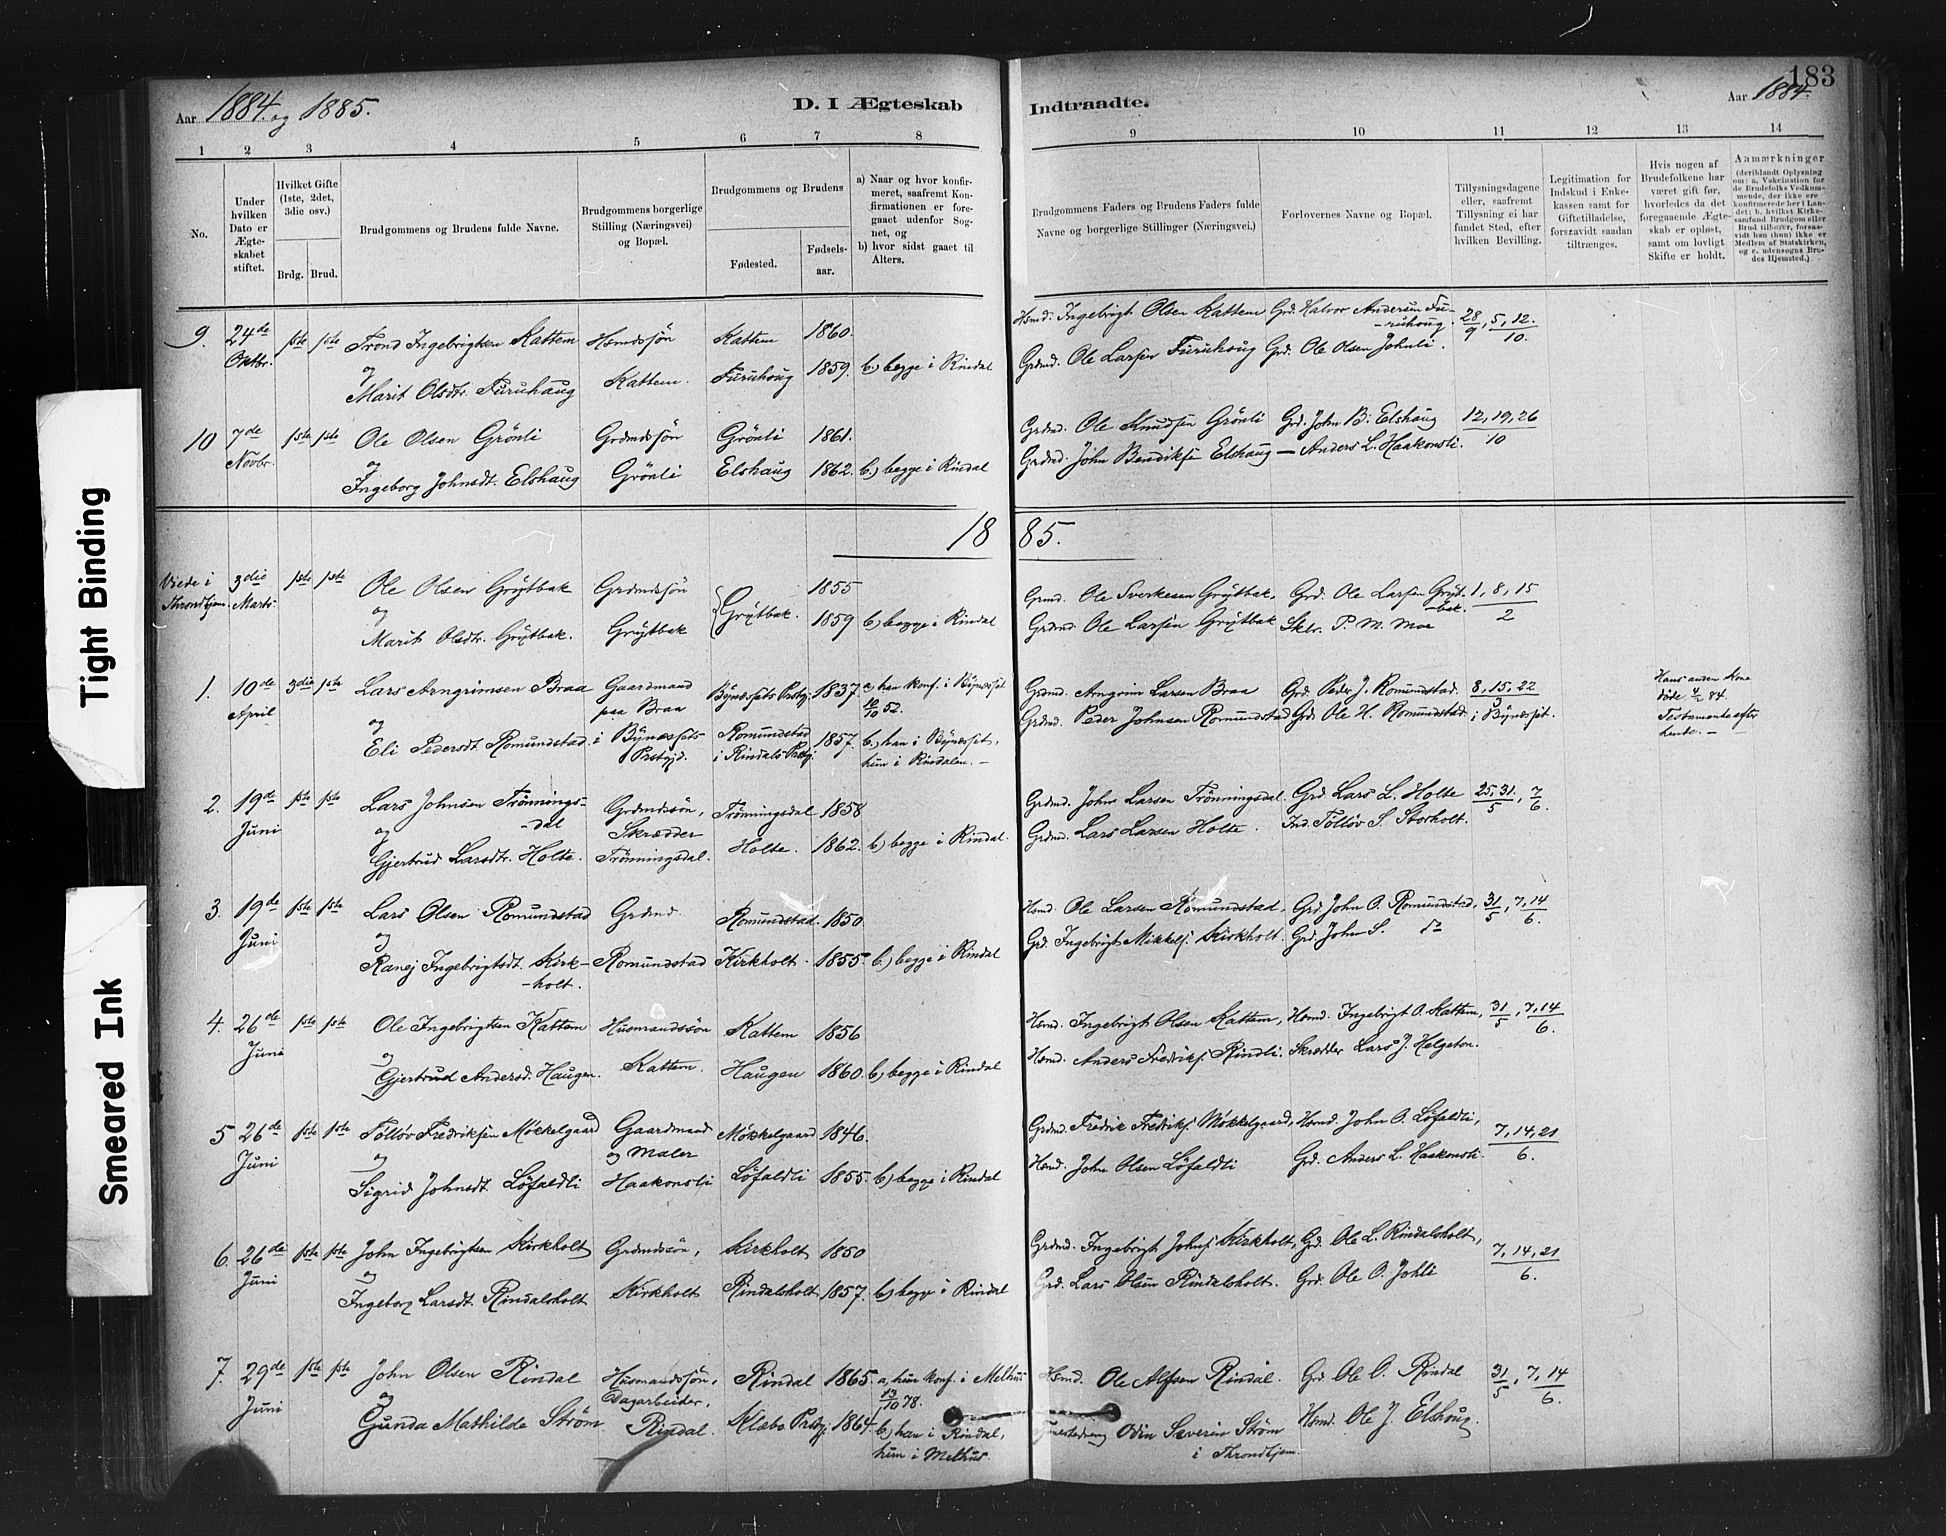 183
Aar 1884. og 1885.
D. I Ægteskab
Indtraadte.
Aar 1884.
1 2 3 4 5 6 7 8
9 10 11 12 13 14
No.
Under hvilken Dato er Ægteskabet stiftet.
Hvilket Gifte (1ste, 2det, 3die osv.)
Brdg. Brud.
Brudgommens og Brudens fulde Navne.
Brudgommens borgerlige Stilling (Næringsvei) og Bopæl.
Brudgommens og Brudens
Fødested.
Fødsels-aar.
a) Naar og hvor konfirmeret, saafremt Konfirmationen er foregaaet udenfor Sognet, og
b) hvor sidst gaaet til Alters.
Brudgommens Faders og Brudens Faders fulde Navne og borgerlige Stillinger (Næringsvei.)
Forlovernes Navne og Bopæl.
Tillysningsdagene eller, saafremt Tillysning ei har fundet Sted, efter hvilken Bevilling.
Legitimation for Indskud i Enkekassen samt for Giftetilladelse, forsaavidt saadan tiltrænges.
Hvis nogen af Brudefolkene har været gift før, hvorledes da det foregaaende Ægteskab er opløst, samt om lovligt Skifte er holdt.
Anmærkninger
9. 24de Oktbr. 1ste 1ste Trond Ingebrigtsen Kattem Hsmdssön Kattem 1860.
og
Marit Olsdtr. Furuhaug Kattem. Furuhoug 1859. b.) begge i Rindal
Hsmd. Ingebrigt Olsen Kattem Grd. Halvor Andersen Furuhoug. 28/9, 5, 12/10.
Grdmd. Ole Larsen Furuhoug Grd. Ole Olsen Johnli.
10 7de Novbr. 1ste 1ste Ole Olsen Grönli Grdmdssön Grönli 1861.
og
Ingeborg Johnsdt. Elshaug Grönli Elshaug 1862. b.) begge i Rindal
Grdmd. Ole Knudsen Grönli Grd. John B. Elshaug 12, 19, 26/10
Grdmd. John Bendiksen Elshaug — Anders L. Haakonsli.
18 85.
Viede i Throndhjem. 3die Marts 1ste 1ste Ole Olsen Gröjtbak Grdmdssön Gröjtbak. 1855
og
Marit Olsdtr. Gröjtbak. Gröjtbak 1859 b.) begge i Rindal
Grmd. Ole Sverkesen Gröjtbak, Grd. Ole Larsen Gröjtbak. 1, 8, 15/2
Grdmd. Ole Larsen Gröjtbak Sklr. P. M. Moe
1. 10de April 3die 1ste Lars Arngrimsen Braa Gaardmand paa Braa Bynæssets Prstgj. 1837. a, han konf. i Bynæsset 10/10 52.
og
Eli Pedersdt. Romundstad. i Bynæssets Prstgjd. Romundstad i Rindals Prstgj. 1857. b.) han i Bynæsset, hun i Rindalen. —
Grdmd. Arngrim Larsen Braa Grd. Peder J. Romundstad. 8, 15, 22/3
Grdmd. Peder Johnsen Romundstad Grd. Ole H. Romundstad i Bynæsset.
Hans anden Kone döde 4/2 84. Testamente efter hende. —
2. 19de Juni 1ste 1ste Lars Johnsen Trönningsdal Grdmdssön, Trönningsdal 1858
og
Gjertrud Larsdtr. Holte. Skrædder Trönningsdal. Holte. 1862. b.) begge i Rindal.
Grdmd. John Larsen Trönningsdal. Grd. Lars L. Holte 25, 31/5, 7/6.
Grdmd. Lars Larsen Holte. Ind. Tollöv S. Storholt.
3. 19de Juni 1ste 1ste Lars Olsen Romundstad Grdmd. Romundstad. 1850
og
Ranej Ingebrigtsdt. Kirkholt. Romundstad Kirkholt. 1855. b.) begge i Rindal
Hsmd. Ole Larsen Romundstad, Grd. John O. Romundstad, 31/5, 7, 14/6.
Grd. Ingebrigt Mikkels. Kirkholt. Grd. John S. do
4. 26de Juni 1ste 1ste Ole Ingebrigtsen Kattem Husmandssön Kattem 1856
og
Gjertrud Andersd. Haugen. Kattem. Haugen 1860. b.) begge i Rindal
Hsmd. Ingebrigt Olsen Kattem, Hsmd. Ingebrigt O. Kattem, 31/5, 7, 14/6.
Hsmd. Anders Fredriks. Rindli. Skrædder Lars J. Helgeton.
5 26de Juni 1ste 1ste Tollöv Fredriksen Møkkelgaard Gaardmand og Maler Møkkelgaard 1846.
og
Sigrid Johnsdt. Löfaldli Haakonsli Löfaldli 1855. b.) begge i Rindal
Grdmd. Fredrik Fredriks. Møkkelgaard, Hsmd. John O. Löfaldli, 7, 14, 21/6.
Hsmd. John Olsen Löfaldli Grd. Anders L. Haakonsli.
6. 26de Juni 1ste 1ste John Ingebrigtsen Kirkholt Grdmdssön, Kirkholt 1850
og
Ingeborg Larsdt. Rindalsholt Kirkholt Rindalsholt 1857. b.) begge i Rindal
Grdmd. Ingebrigt Johns. Kirkholt, Grd. Ole L. Rindalsholt, 7, 14, 21/6.
Grd. Lars Olsen Rindalsholt. Grd. Ole O. Johli
7. 29de Juni 1ste 1ste John Olsen Rindal Husmandssön, Dagarbeider, Rindal 1865. a, hun konf. i Melhus 13/10 78.
og
Gunda Mathilde Ström Rindal. Klæbo Prstgj. 1864. b.) han i Rindal, hun i Melhus.
Hsmd. Ole Alfsen Rindal. Grd. Ole O. Rindal 31/5, 7, 14/6.
Odin Severin Ström i Throndhjem. Hsmd. Ole J. Elshoug.
Tight Binding
Smeared Ink